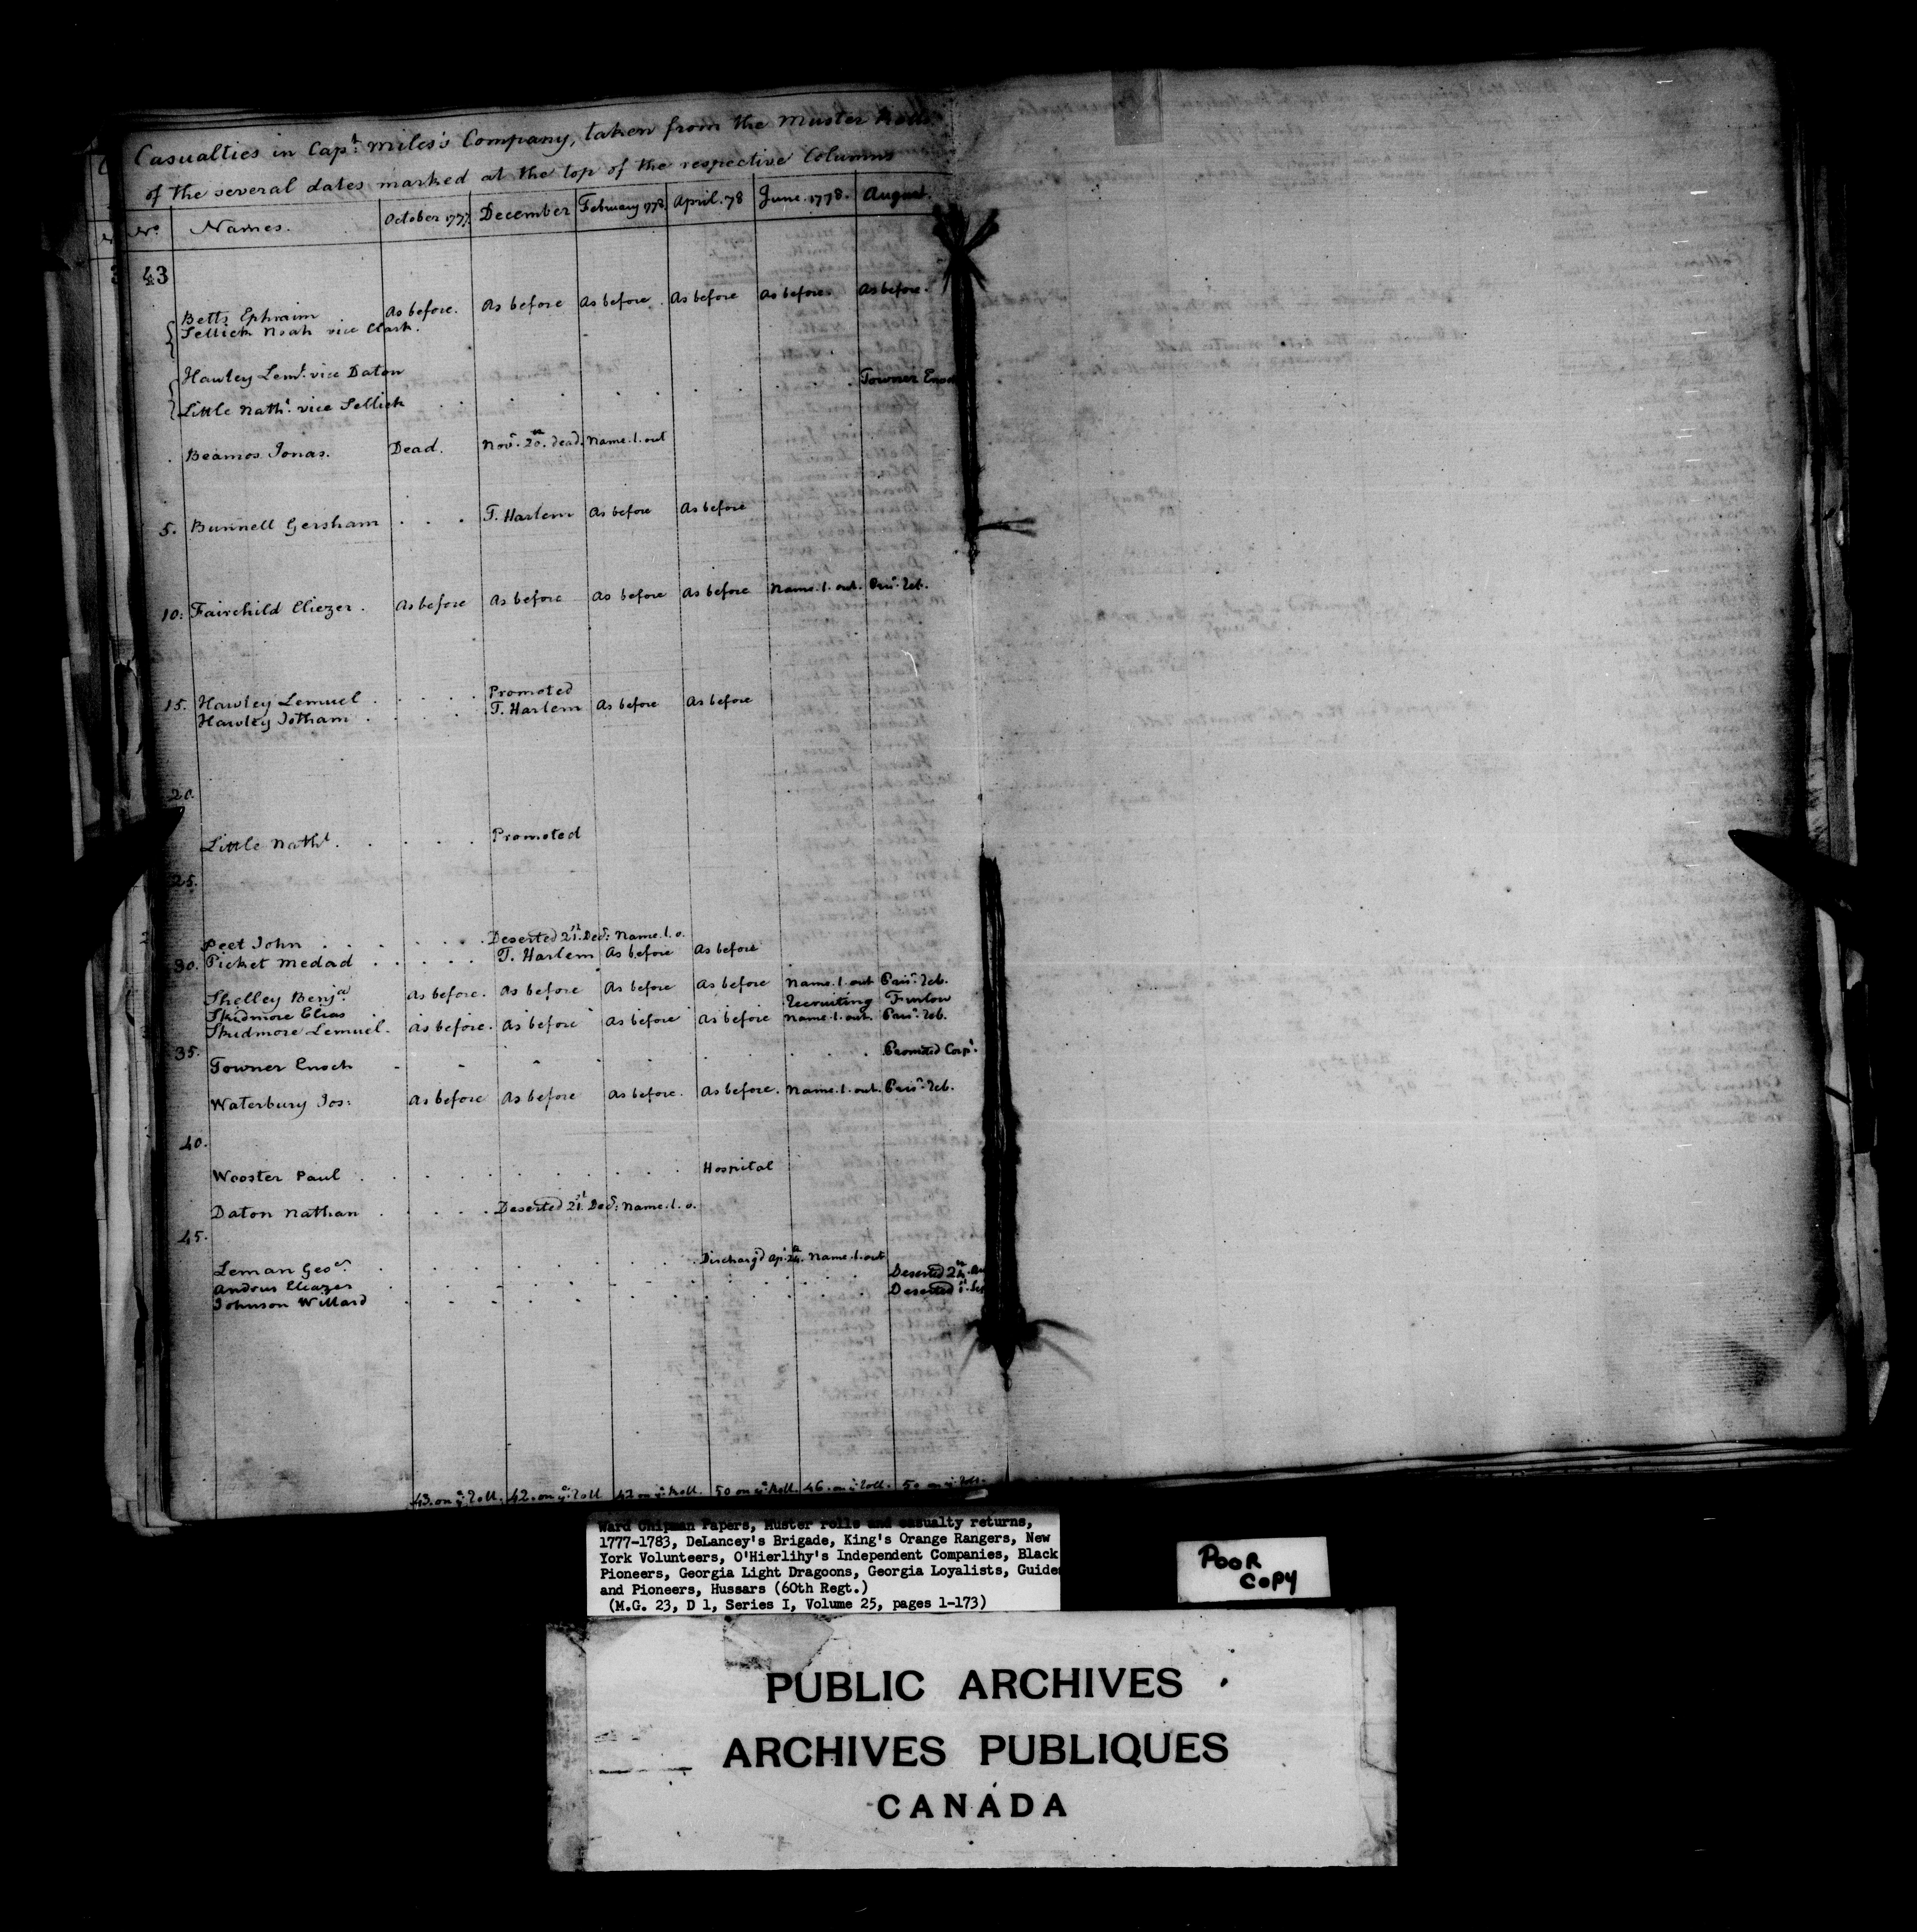 Casualties in Capt. Miles's Company, taken from the Muster Rolls
of the several dates marked at the top of the respective Columns
No. Names. October 1777. December February 1778. April. 78 June. 1778. August.
43
Betts Ephraim As before. As before As before. As before As before. As before.
Sellick Noah vice Clark.
Hawley Leml. vice Daton
Little Nathl. vice Sellick . . . . . . . Towner Enoch
Beamos Jonas. Dead. Novr. 20th. dead. Name. l. out
5. Bunnell Gersham . . . T. Harlem As before As before
10. Fairchild Eliezer. As before As before As before As before Name. l. out. Prisr. Reb.
15. Hawley Lemuel . . . . . Promoted
Hawley Jotham . . . . T. Harlem As before As before
20.
Little Nathl. . . . . . Promoted
25.
Peet John . . . . . . Deserted 21st. Decr: Name. l. o.
30. Picket Medad . . . . . T. Harlem As before As before
Shelley Benja. As before. As before As before As before Name. l. out Prisr. Reb.
Skidmore Elias . Recruiting Furlow
Skidmore Lemuel. As before. As before As before As before Name. l. out. Prisr. Reb.
35.
Towner Enoch - - - . . . . . . Promoted Corpl.
Waterbury Jos: As before As before As before. As before. Name. l. out. Prisr. Reb.
40.
Wooster Paul . . . . . . . . . Hospital
Daton Nathan . . . . . Deserted 21st. Decr: Name. l. o.
45.
Leman Geoe. . . . . . . . . Discharg'd Ap. 24th. Name. l. out
Andrus Eleazer . . . . . . . . . Deserted 24th.
Johnson Willard . . . . . . . . . Deserted 1st.
43. on ye. Roll. 42. on ye: Roll 42 on ye. Roll. 50 on ye. Roll 46. on ye. Roll. 50 on ye. Roll.
Ward Chipman Papers, Muster rolls and casualty returns,
1777-1783, DeLancey's Brigade, King's Orange Rangers, New
York Volunteers, O'Hierlihy's Independent Companies, Black
Pioneers, Georgia Light Dragoons, Georgia Loyalists, Guides
and Pioneers, Hussars (60th Regt.)
(M.G. 23, D 1, Series I, Volume 25, pages 1-173)
POOR
COPY
PUBLIC ARCHIVES
ARCHIVES PUBLIQUES
CANADA